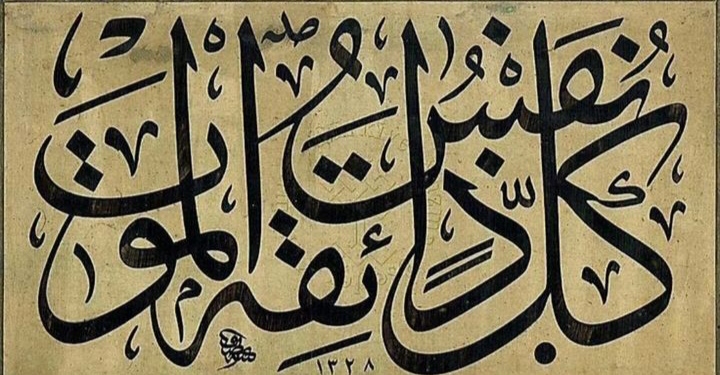 كُلُّ نَفْسٍ ذَائِقَةُ الْمَوْتِ
١٣٢٨